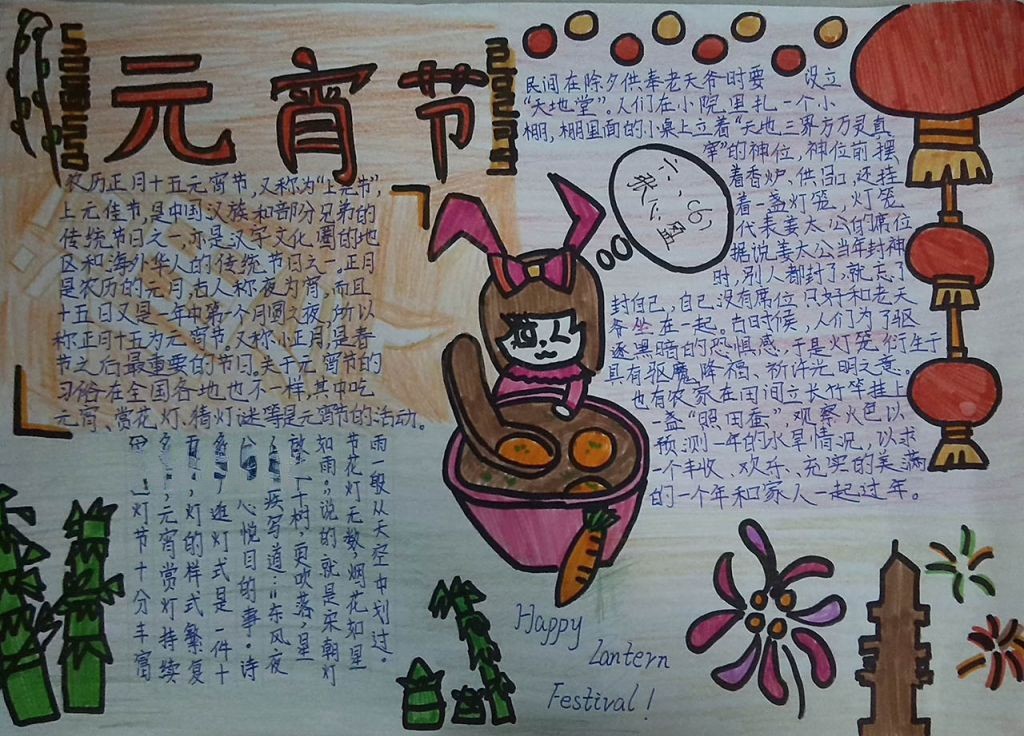 元宵节
农历正月十五元宵节,又称为“上元节”
上元佳节,是中国汉族和部分兄弟的
传统节日之一,亦是汉字文化圈的地
区和海外华人的传统节日之一。正月
是农历的元月,古人称夜为宵,而且
十五日又是一年中第一个月圆之夜,所以
称正月十五为元宵节。又称小正月,是春
节之后最重要的节日。关于元宵节的
习俗在全国各地也不一样,其中吃
元宵、赏花灯、猜灯谜等是元宵节的活动。
民间在除夕供奉老天爷时要 设立
“天地堂”。人们在小院里扎一个小
棚,棚里面的小桌上立着“天地三界方万灵真
宰”的神位,神位前摆
着香炉、供品,还挂
着一盏灯笼,灯笼
代表姜太公的席位
据说姜太公当年封神
时,别人都封了,就忘了
封自己,自己没有席位,只好和老天
爷坐在一起。古时候,人们为了驱
逐黑暗的恐惧感,于是灯笼衍生于
具有驱魔、降福、祈许光明之意。
也有农家在田间立长竹竿挂上
一盏“照田蚕”,观察火色以
预测一年的水旱情况,以求
一个丰收、欢乐、充实的美满
的一个年和家人一起过年。
雨一般从天空中划过。
节花灯无数,烟花如星
如雨。”说的就是宋朝灯
树,更吹落,星
疾写道:“东风夜
心悦目的事。诗
逛灯式是一件十
灯的样式繁复
元宵赏灯持续
灯节十分丰富
Happy
Lantern
Festival!